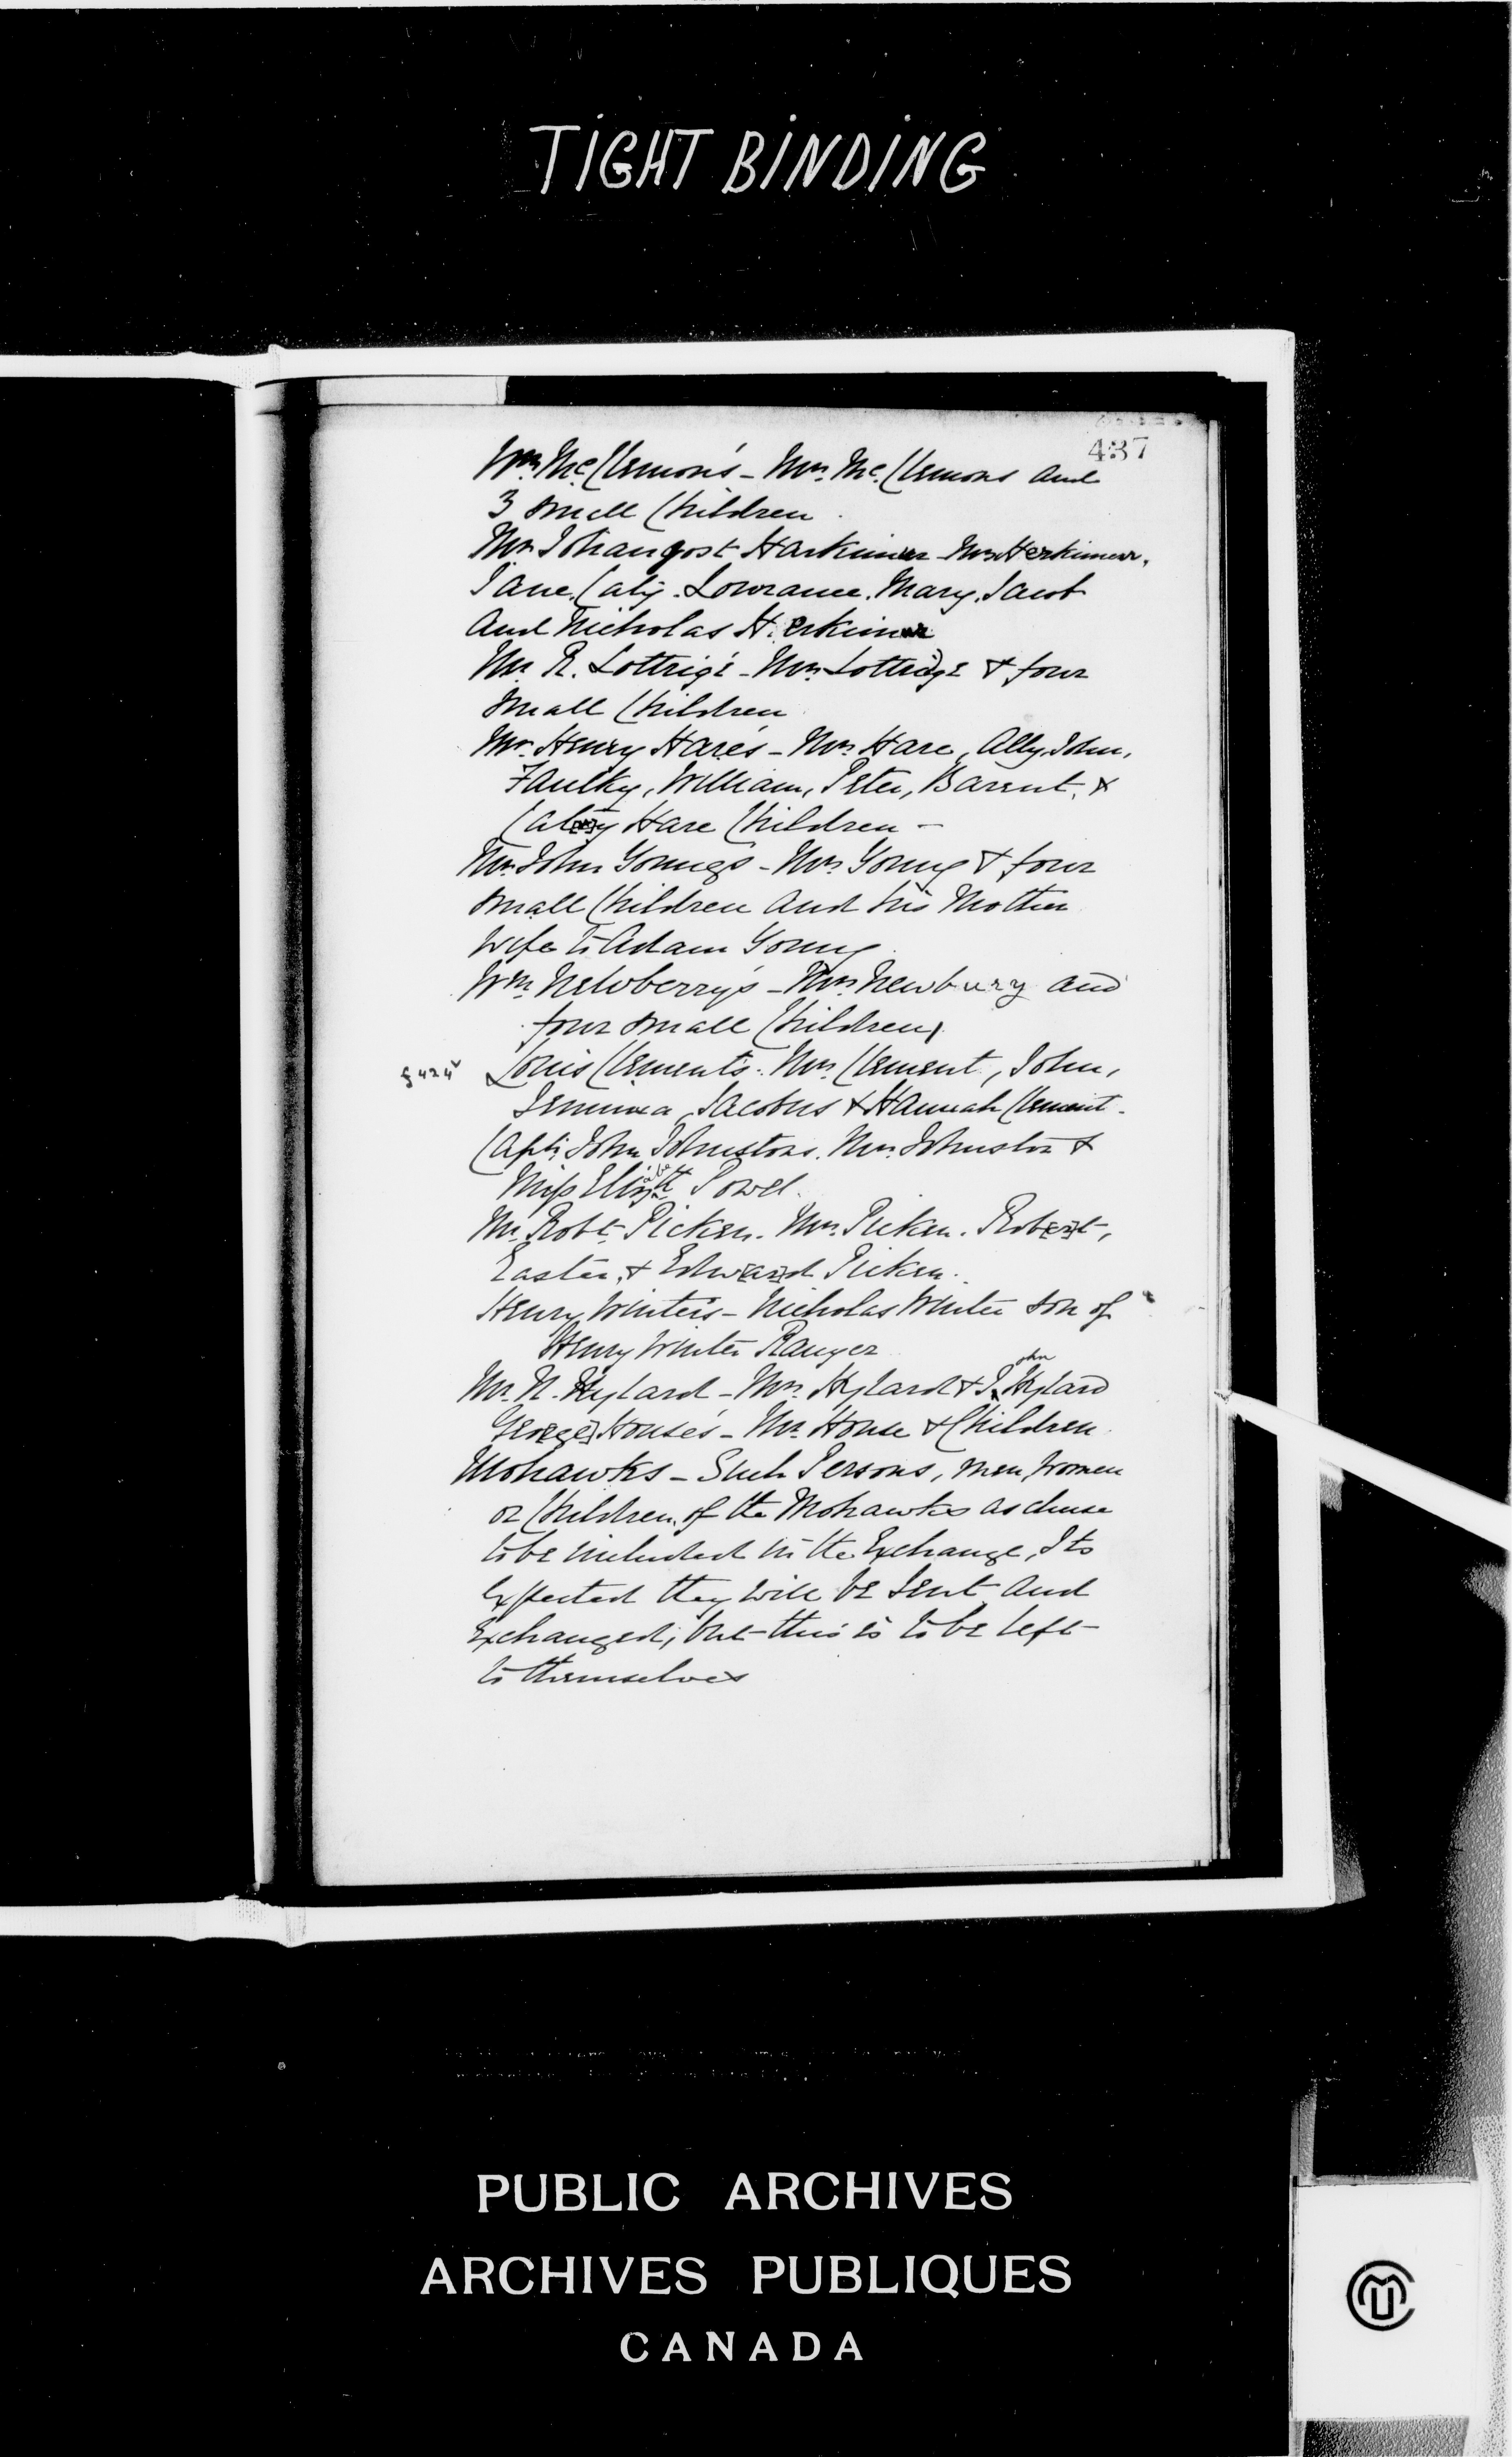 TIGHT BINDING
437
Wm. Mc.Clemon's - Mrs. Mc.Clemons and
3 small Children
Mr Johanyost Harkimer Mrs Herkimer,
Jane, Caty. Lowrance. Mary. Jacob
and Nicholas Herkimer
Mr R. Lottrig's - Mrs Lottridge & four
small Children
Mr. Henry Hare's - Mrs Hare, Ally, John,
Faulky, William, Peter, Barent, &
Caty Hare Children -
Mr. John Young's - Mrs Young & four
small Children and his Mother
wife to Adam Young.
Wm. Newberry's - Mrs. Newbury and
four small Children,
§ 424 Louis Clement's. Mrs Clement, John,
Jemima, Jacobus & Hannah Clement.
Capt: John Johnstons. Mrs. Johnston &
Miss Elizabeth Powel.
Mr. Robt. Picken. Mrs. Picken. Rob[er]t,
Easter, & Edw[ar]d Picken.
Henry Winter's - Nicholas Winter son of
Henry Winter Ranger
Mr. N. Hylard - Mrs. Hylard & John Hylard
Geo[rge] House's - Mr. House & Children.
Mohawks - Such Persons, men, women
or Children, of the Mohawks as chuse
to be included in the Exchange, Its
expected they will be sent and
Exchanged; but this is to be left
to themselves
PUBLIC ARCHIVES
ARCHIVES PUBLIQUES
CANADA